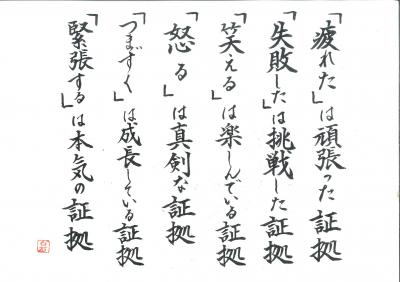 「疲れた」は頑張った証拠
「失敗した」は挑戦した証拠
「笑える」は楽しんでいる証拠
「怒る」は真剣な証拠
「つまずく」は成長している証拠
「緊張する」は本気の証拠